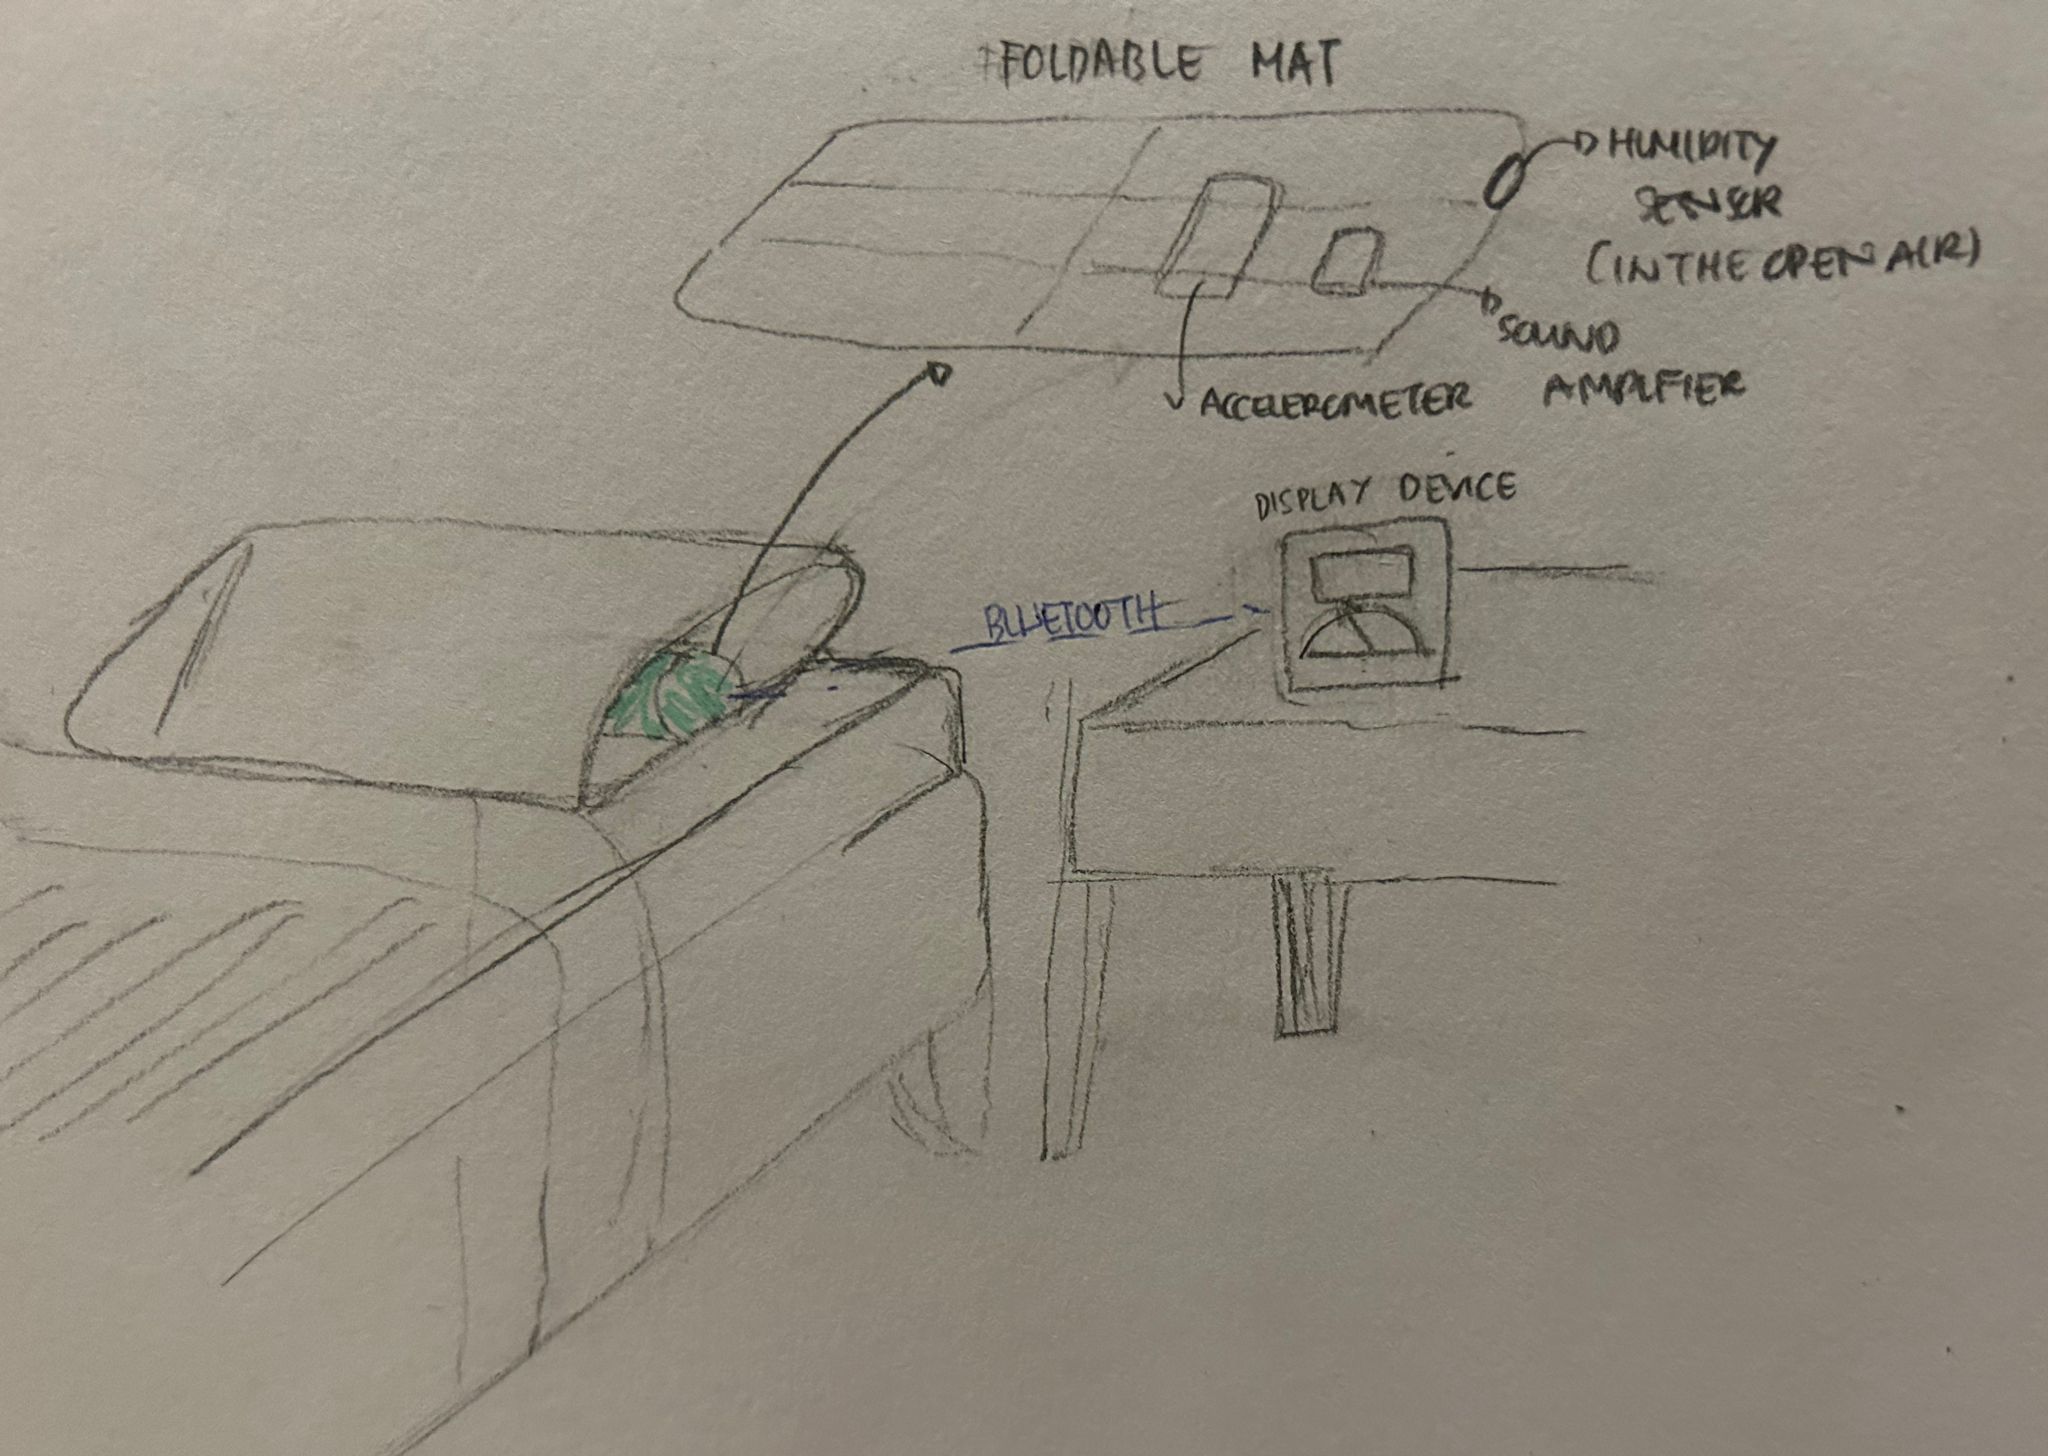 FOLDABLE MAT
HUMIDITY
SENSOR
(IN THE OPEN AIR)
SOUND
AMPLIFIER
ACCELEROMETER
DISPLAY DEVICE
BLUETOOTH